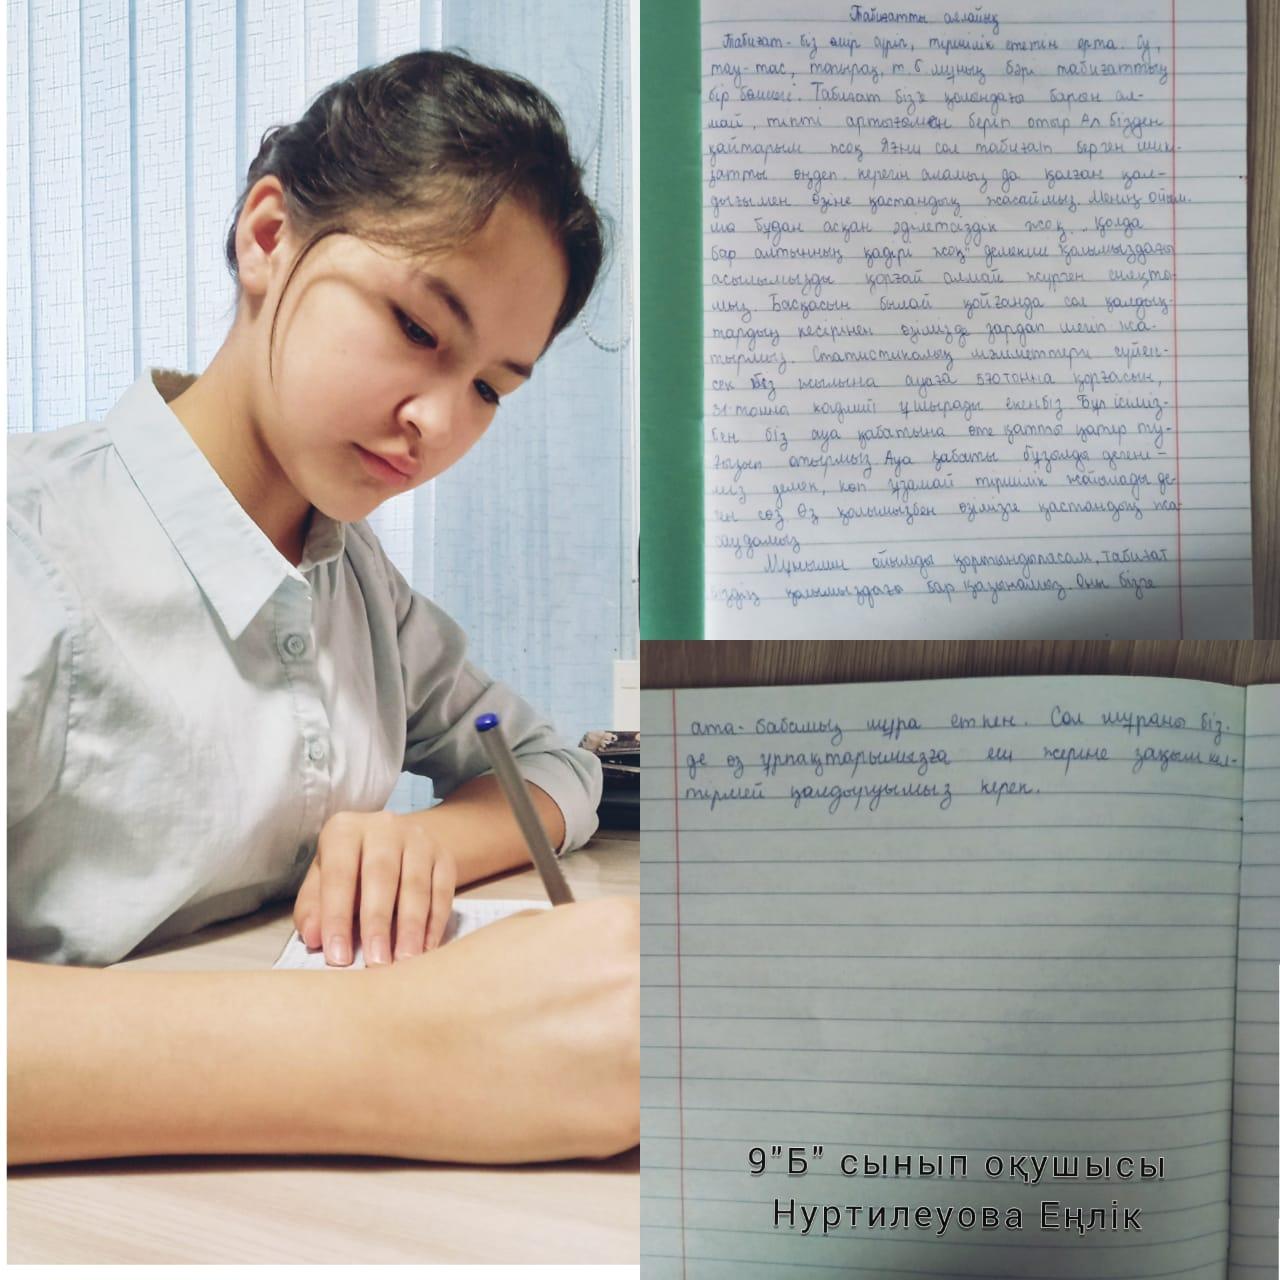 Табиғатты аялайық
Табиғат - біз өмір сүріп, тіршілік ететін орта. Су,
тау-тас, топырақ, т.б мұның бәрі табиғаттың
бір бөлшегі. Табиғат бізге қолындағы барын ая-
май, тіпті артығымен беріп отыр Ал бізден
қайтарым жоқ Яғни сол табиғат берген шикі-
затты өңдеп керегін аламыз да қалған қал-
дығымен өзіне қастандық жасаймыз. Менің ойым-
ша бұдан асқан әділетсіздік жоқ. "Қолда
бар алтынның қадірі жоқ" демекші қолымыздағы
асылымызды қорғай алмай жүрген сияқты-
мыз. Басқасын былай қойғанда сол қалдық-
тардың кесірінен өзімізде зардап шегіп жа-
тырмыз. Статистикалық мәліметтерге сүйен-
сек біз жылына ауаға 570 тонна қорғасын,
31-тонна кадмий ұшырады екенбіз Бұл ісіміз-
бен біз ауа қабатына өте қатты қатер ту-
ғызып отырмыз. Ауа қабаты бұзылды дегені-
міз демек, көп ұзамай тіршілік жойылады де-
ген сөз. Өз қолымызбен өзімізге қастандық жа-
саудамыз
Мұнымен ойымды қортындыласам, табиғат
біздің қолымыздағы бар қазынамыз. Оны бізге
ата-бабамыз мұра еткен. Сол мұраны біз-
де өз ұрпақтарымызға еш жеріне зақым кел-
тірмей қалдыруымыз керек.
9"Б" сынып оқушысы
Нуртилеуова Еңлік